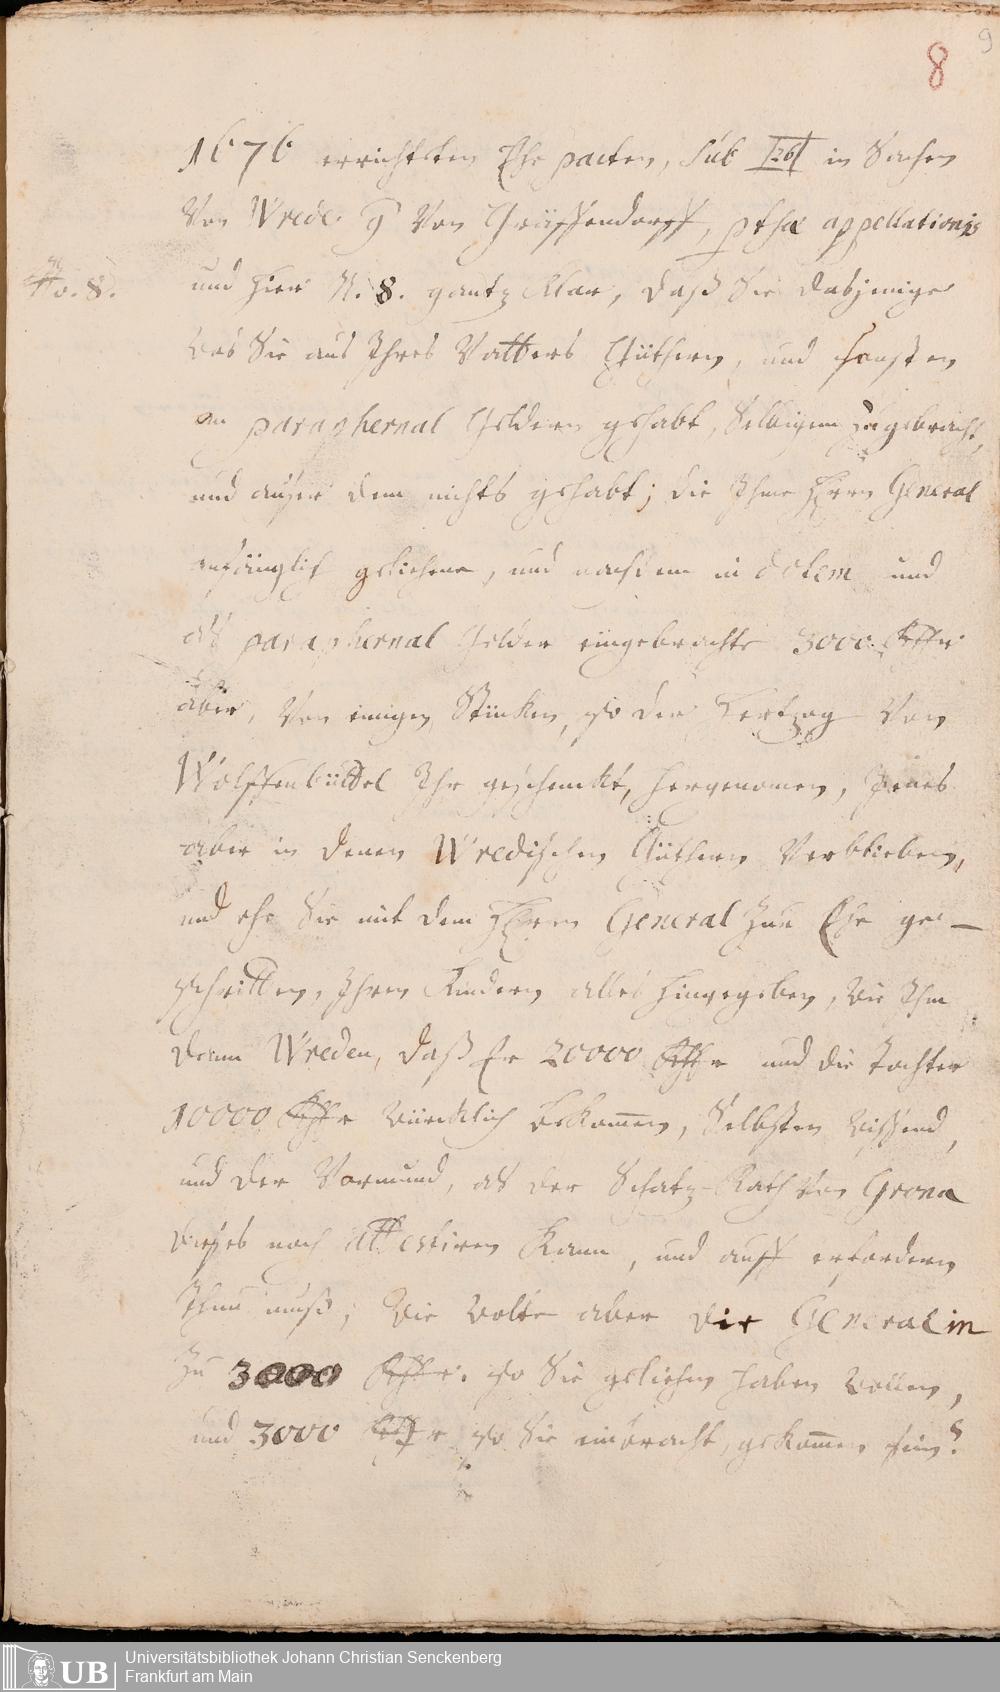 9
8
1676 errichteten Ehe pacten, sub [26] in Sachen
Von Wrede. Von Gräffendorff, appellationis
No. 8.
und hier N. 8. gantz klar, daß Sie dasjenige
was Sie aus Ihres Vatters Güthern, und sonsten
an paraphernal Geldern gehabt, Selbigem zugebracht,
und außer dem nichts gehabt; die Ihme Herrn General
anfänglich geliehene, und nachdem in dotem und
als paraphernal Gelder eingebrachte 3000. Rthlr
aber, Von einigen Stücken, so der Hertzog Von
Wolffenbüttel Ihr geschenckt, hergenomen, Jenes
aber in denen Wredischen Güthern Verblieben,
und ehe Sie mit dem Herrn General zur Ehe ge-
schritten, Ihren Kindern alles hingegeben, wie Ihm
denn Wreden, daß Er 20000 Rthlr und die Tochter
10000 Rthlr würcklich bekomen, Selbsten wißend,
und der Vormund, als der Schatz-Rath Von Grona
dieses noch attestiren kann, und auff erfordern
Thun muß; Wie wolte aber die Generalin
Zu 3000 Rthlr. so Sie geliehen haben wollen,
und 3000 Rthlr so Sie einbracht, gekomen sein?
Universitätsbibliothek Johann Christian Senckenberg
Frankfurt am Main
UB